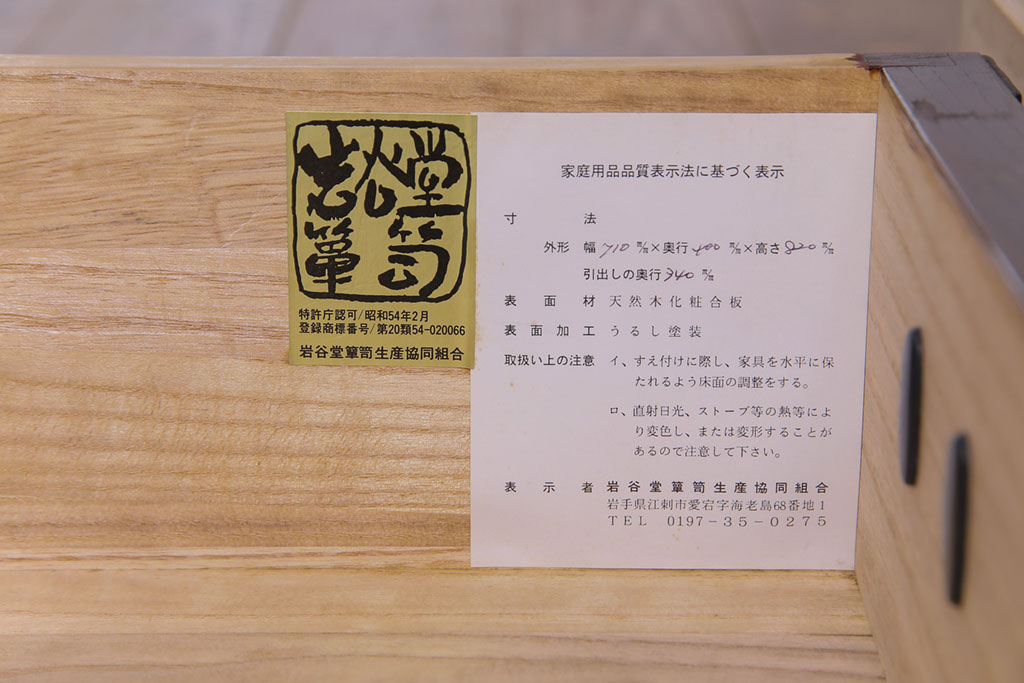 岩谷堂
簞笥
特許庁認可/昭和54年2月
登録商標番号/第20類54-020066
岩谷堂簞笥生産協同組合
家庭用品品質表示法に基づく表示
寸法
外形 幅710㎜×奥行400㎜×高さ820㎜
引出しの奥行340㎜
表面材 天然木化粧合板
表面加工 うるし塗装
取扱い上の注意 イ、すえ付けに際し、家具を水平に保
たれるよう床面の調整をする。
ロ、直射日光、ストーブ等の熱等によ
り変色し、または変形することが
あるので注意して下さい。
表示者 岩谷堂簞笥生産協同組合
岩手県江刺市愛宕字海老島68番地1
TEL 0197-35-0275